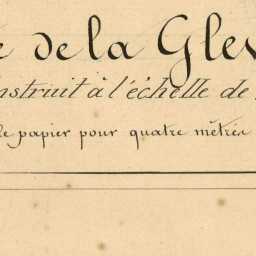 de la Gle
nstruit à l'échelle de
le papier pour quatre mètres